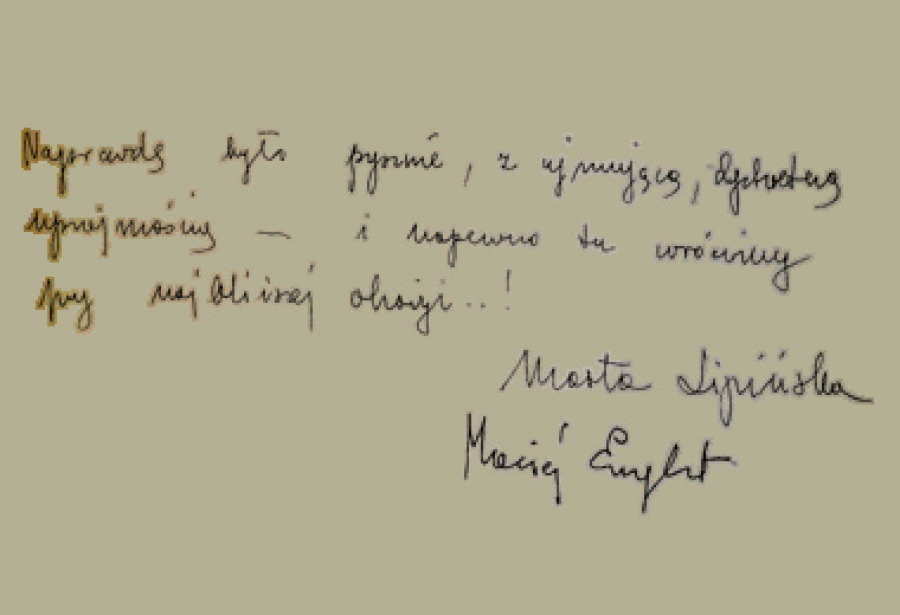 Naprawdę było pysznie, z ujmującą, dyskretną
uprzejmością — i napewno tu wrócimy
przy najbliższej okazji..!
Marta Lipińska
Maciej Englert